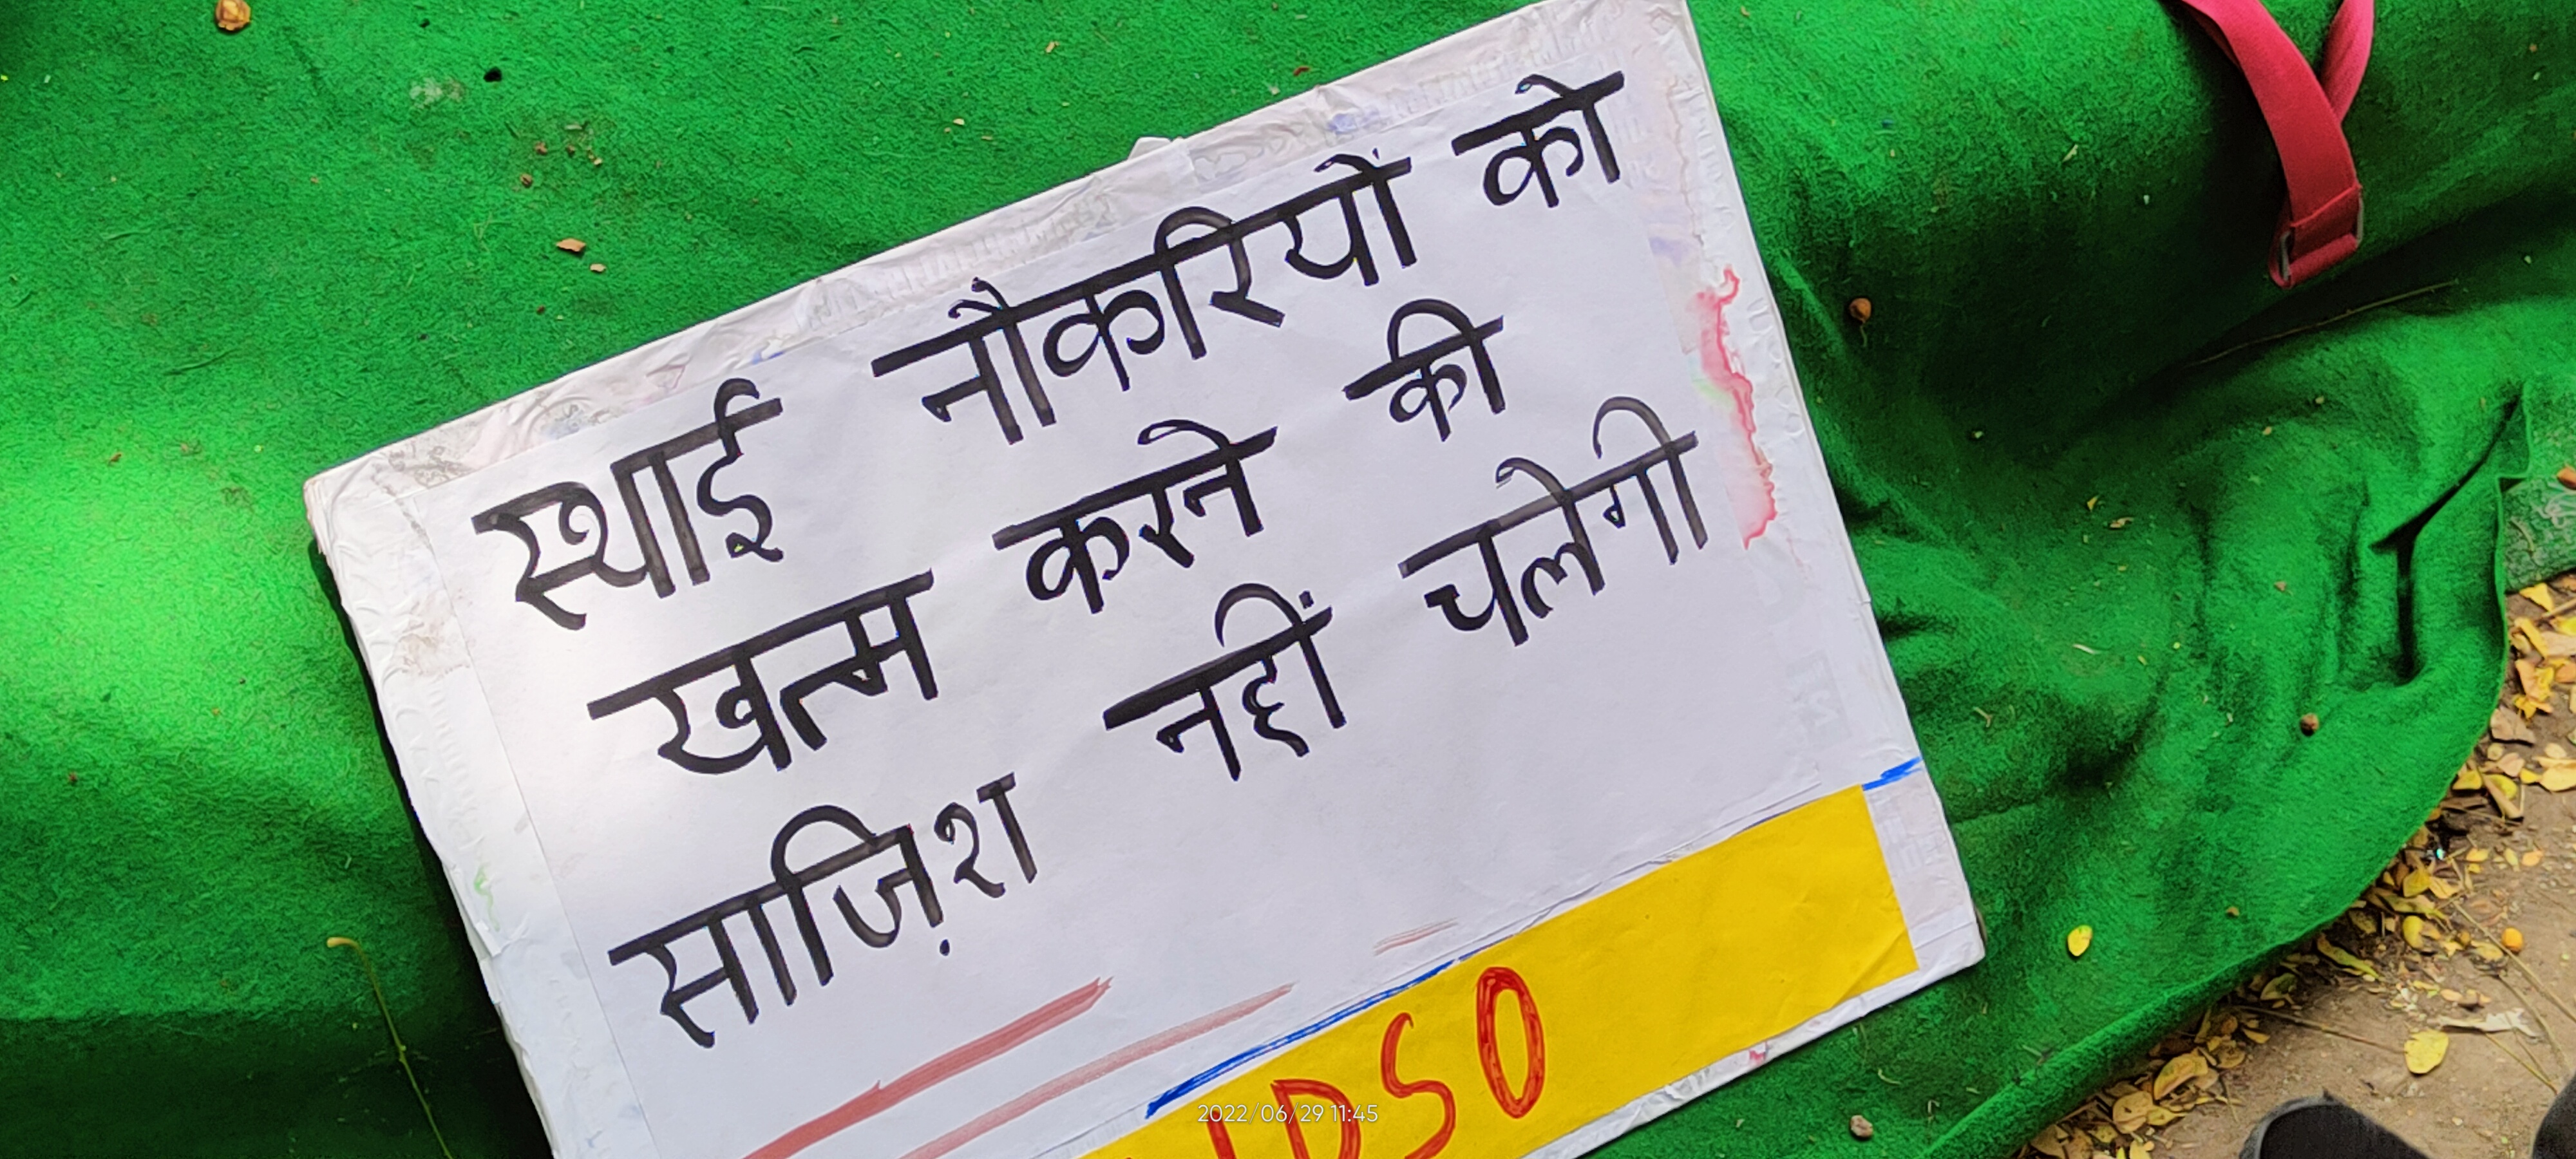 स्थाई नौकरियों को
खत्म करने की
साज़िश नहीं चलेगी
IDSO
2022/06/29 11:45